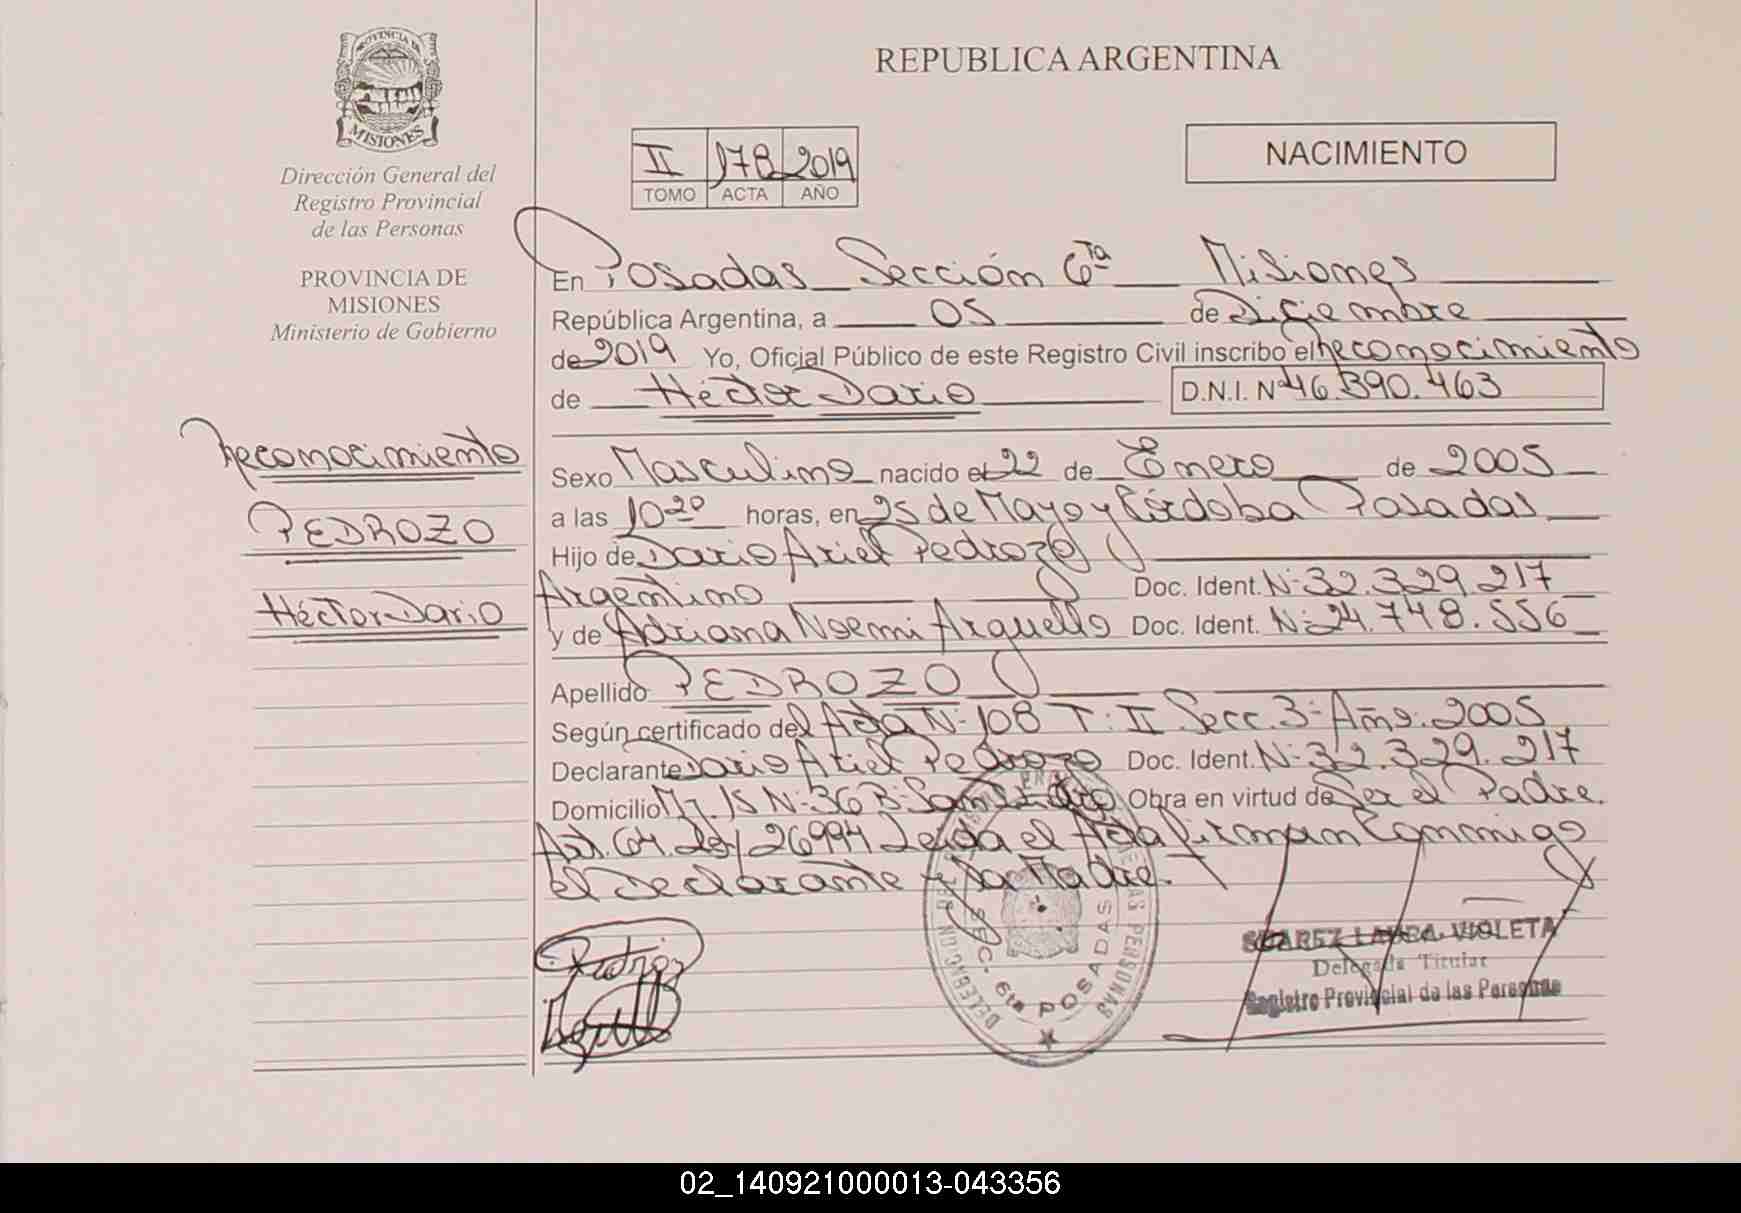 PROVINCIA DE
MISIONES
Dirección General del
Registro Provincial
de las Personas
PROVINCIA DE
MISIONES
Ministerio de Gobierno
Reconocimiento
PEDROZO
Héctor Dario
REPUBLICA ARGENTINA
II 178 2019
TOMO ACTA AÑO
NACIMIENTO
En Posadas Sección 6ta Misiones
República Argentina, a 05 de Diciembre
de 2019 Yo, Oficial Público de este Registro Civil inscribo el reconocimiento
de Héctor Dario D.N.I. Nº 46.390.463
Sexo Masculino nacido el 22 de Enero de 2005
a las 10 20 horas, en 25 de Mayo y Córdoba Posadas
Hijo de Dario Ariel Pedrozo
Argentino Doc. Ident. Nº 32.329.217
y de Adriana Noemi Arguello Doc. Ident. Nº 24.748.556
Apellido PEDROZO
Según certificado del Acta Nº 108 T: II Secc. 3ª Año: 2005
Declarante Dario Ariel Pedrozo Doc. Ident. Nº 32.329.217
Domicilio Mz. 15 Nº 36 Bº San Obra en virtud de Ser el Padre.
Art. 64. 26994 Leida el Acta firman Conmigo
el Declarante y la Madre.
DELEGACION PERSONAS
SEC. 6ta POSADAS
SUAREZ LAURA VIOLETA
Delegada Titular
Registro Provincial de las Personas
02_140921000013-043356